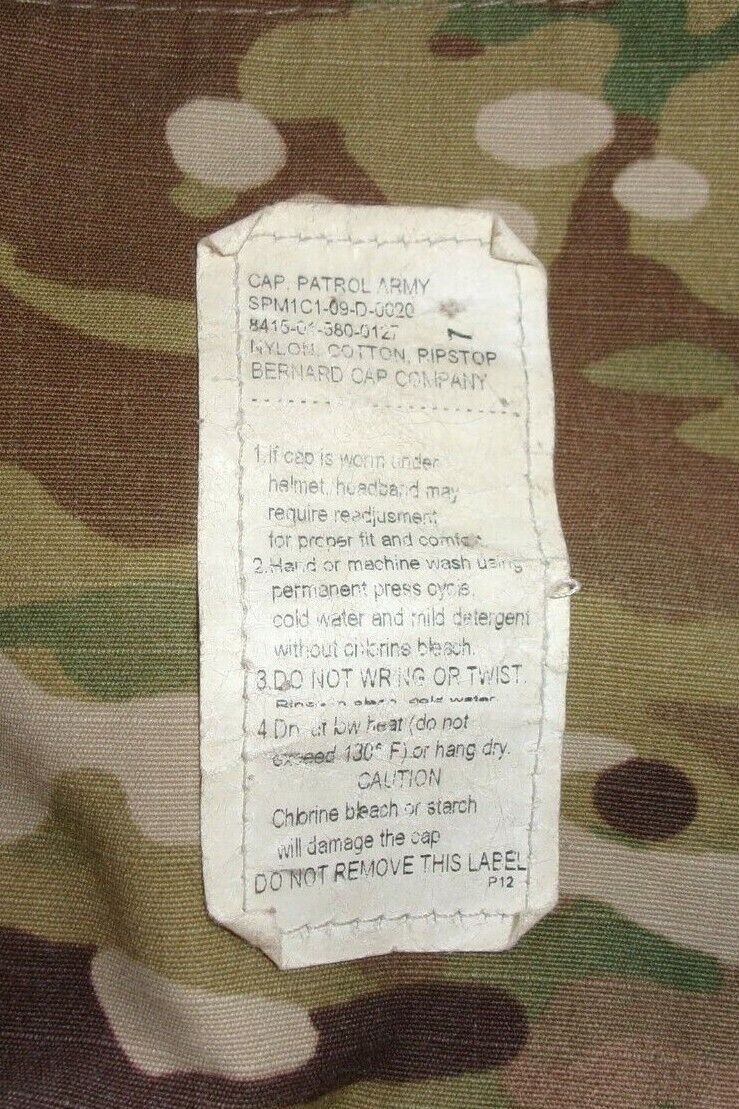 CAP, PATROL ARMY
SPM1C1-09-D-0020
8415-01-580-0127 7
NYLON, COTTON, RIPSTOP
BERNARD CAP COMPANY
1.If cap is worm under
helmet, headband may
require readjusment
for proper fit and comfort.
2.Hand or machine wash using
permanent press cycle,
cold water and mild detergent
without chlorine bleach.
3.DO NOT WRING OR TWIST.
Rinse in clean, cold water
4.Dry at low heat (do not
exceed 130° F).or hang dry.
CAUTION
Chlorine bleach or starch
will damage the cap
DO NOT REMOVE THIS LABEL
P12